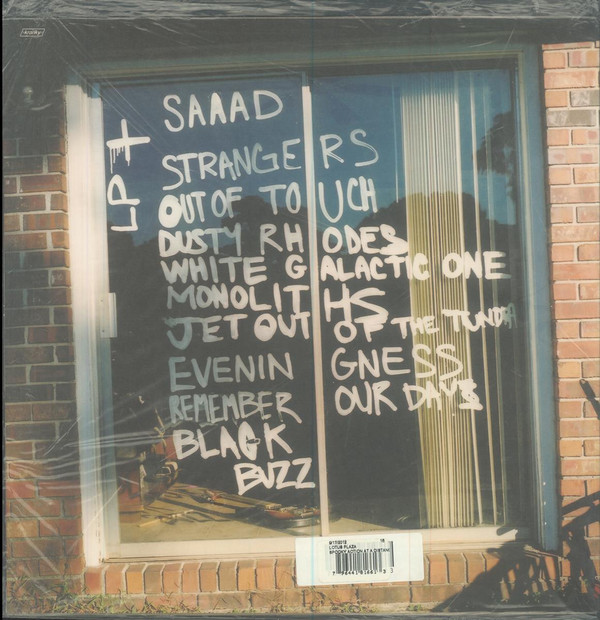 SAAAD
LPT
STRANGERS
OUT OF TOUCH
DUSTY RHODES
WHITE GALACTIC ONE
MONOLITHS
JET OUT OF THE TUNDRA
EVENINGNESS
REMEMBER OUR DAYS
BLACK
BUZZ
LOTUS PLAZA
SPOOKY ACTION AT A DISTANC